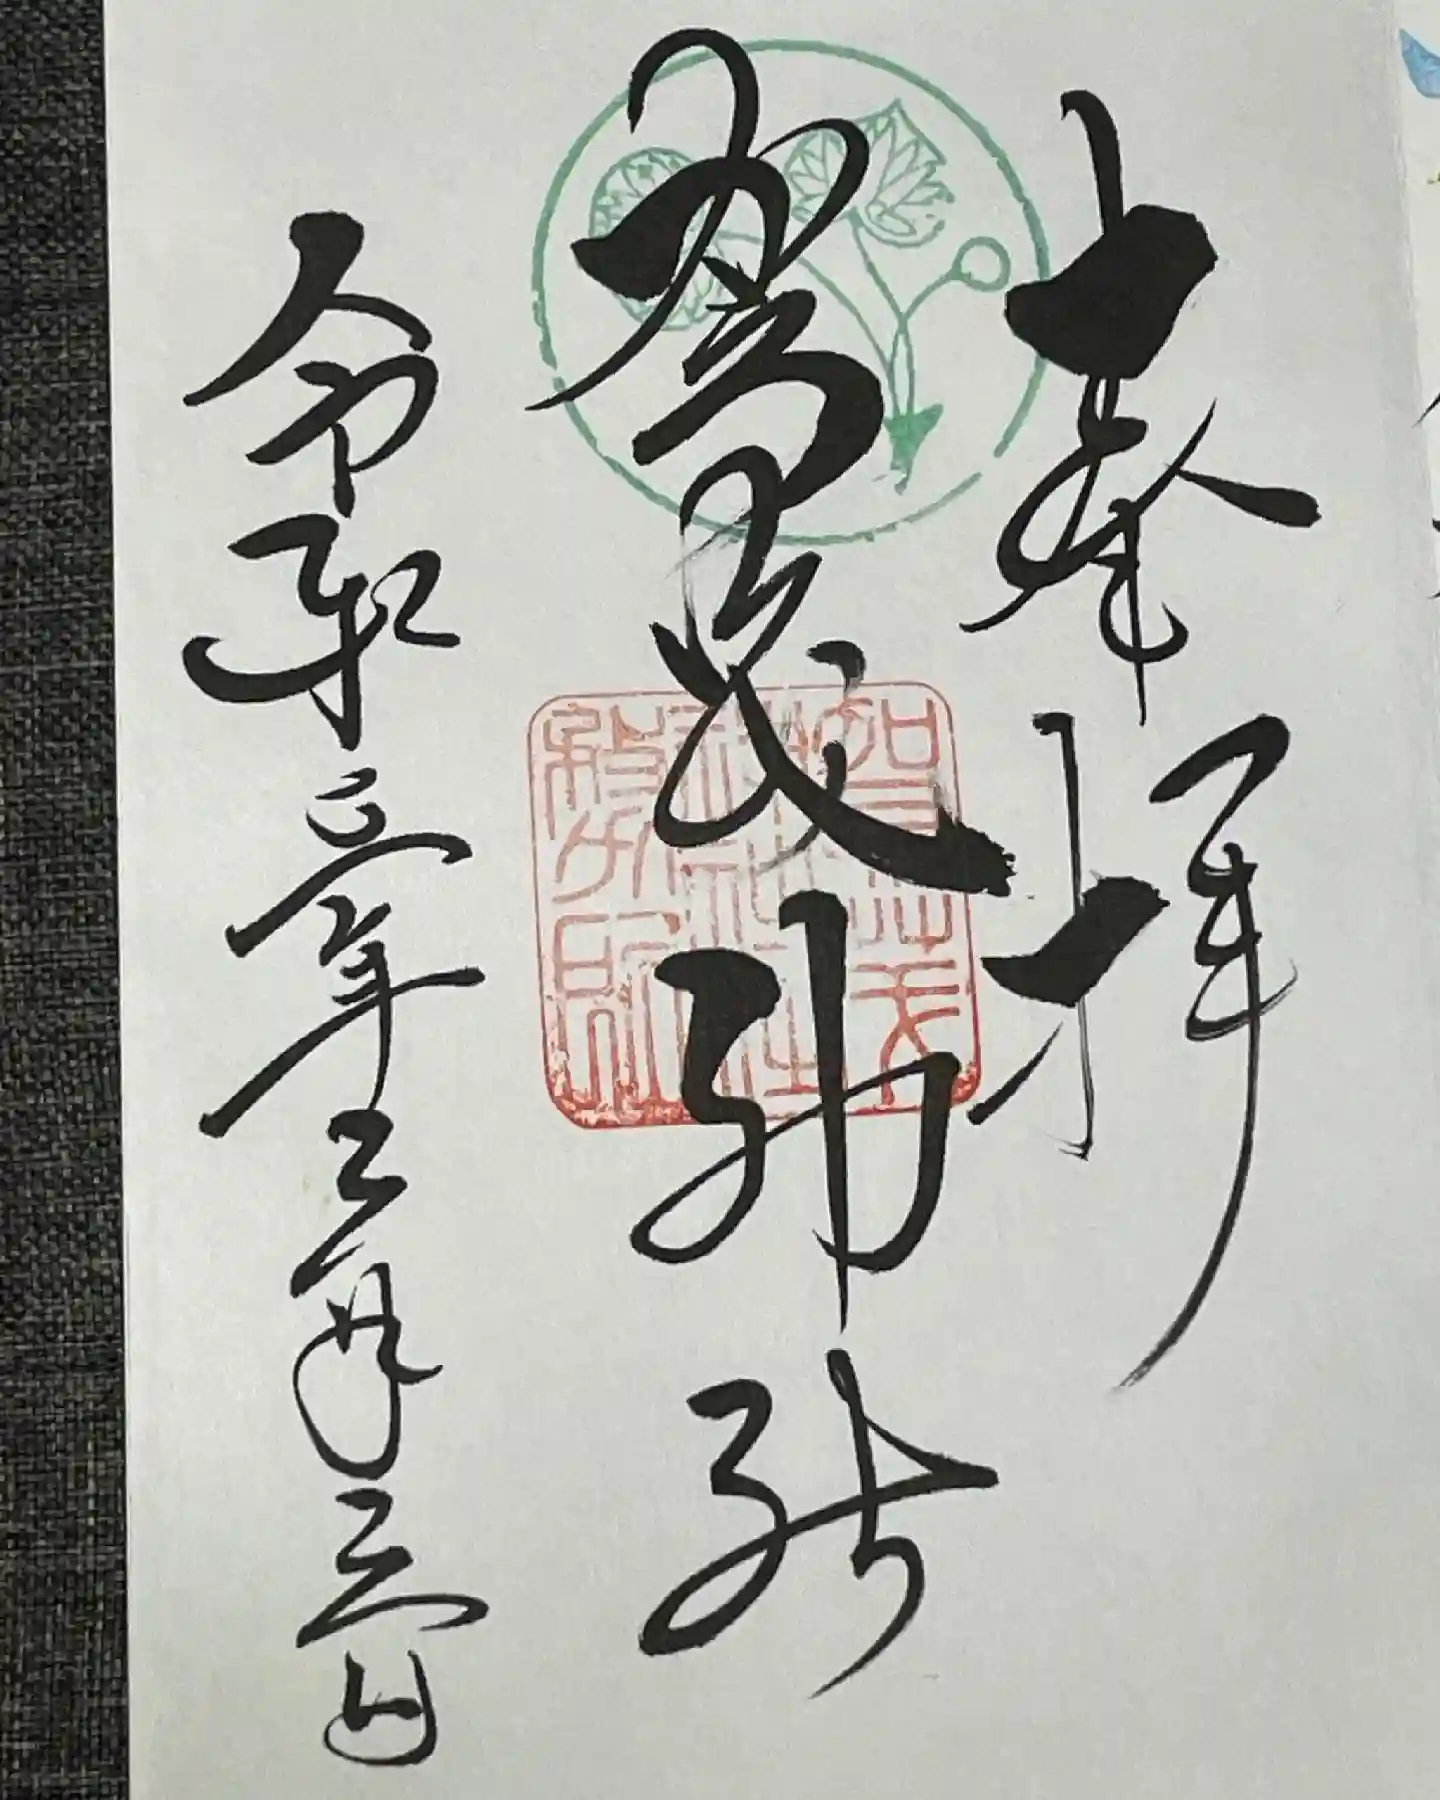 奉拝
賀茂神社
令和三年二月三日
賀茂
神社社
務所